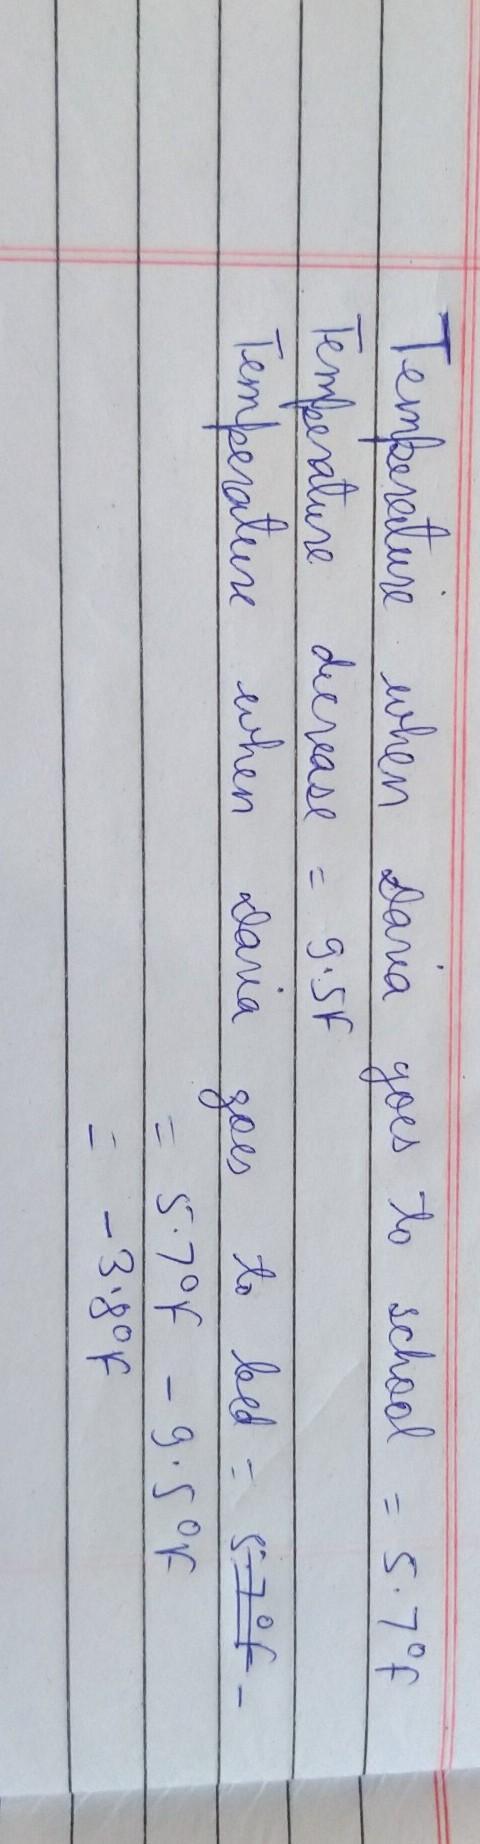 Temperature when Daria goes to school = 5.7°F
Temperature decrease = 9.5F
Temperature when Daria goes to bed = 5.7°F -
= 5.7°F - 9.5°F
= -3.8°F